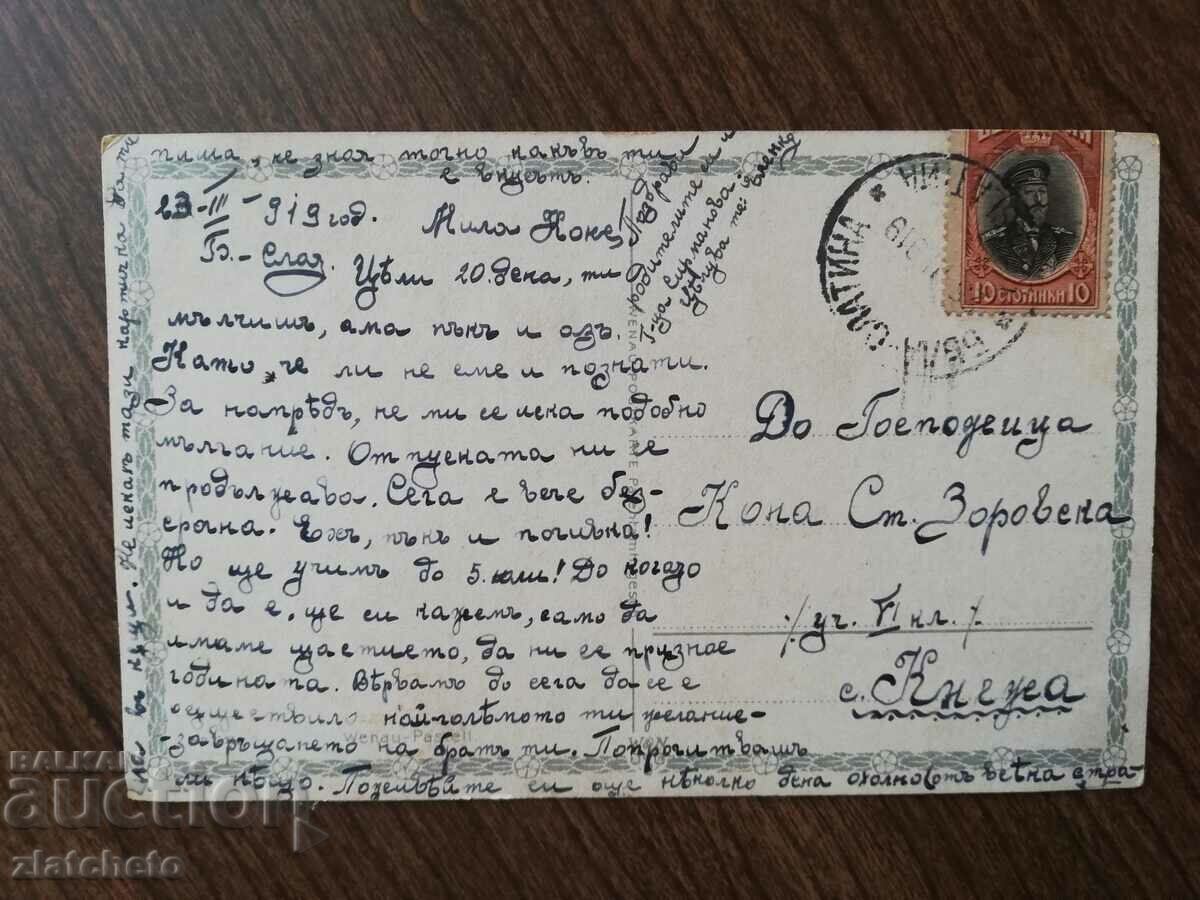 пиша, не зная точно какъвъ ти
е вкусътъ.
23-III-919 год. Мила Коне,
Б.-Слат. Цѣли 20. дена, ти
мълчишъ, ама пъкъ и азъ.
Като че ли не сме и познати.
За напрѣдъ, не ми се иска подобно
мълчание. Отпуската ни се
продължава. Сега е вече без-
срочна. Ехъ, пъкъ и почивка!
Но ще учимъ до 5. юли! До когато
и да е, ще си кажемъ, само да
имаме щастието, да ни се признае
годината. Вѣрвамъ до сега да се е
осъществило най-голѣмото ти желание-
завръщането на братъ ти. Попрочитвашъ
ли нѣщо.
още нѣколко дена
Не искахъ тази картичка да ти
Поздрави
родителите си и
Г-ца Сирманова.
Цѣлува те:
Ценко
БѢЛА-СЛАТИНА
10 СТОТИНКИ 10
До Господеица
Кона Ст. Зоровска
/уч. VI кл./
с. Кнежа
Wenau-Pastell
BALKAN
auction
zlatcheto